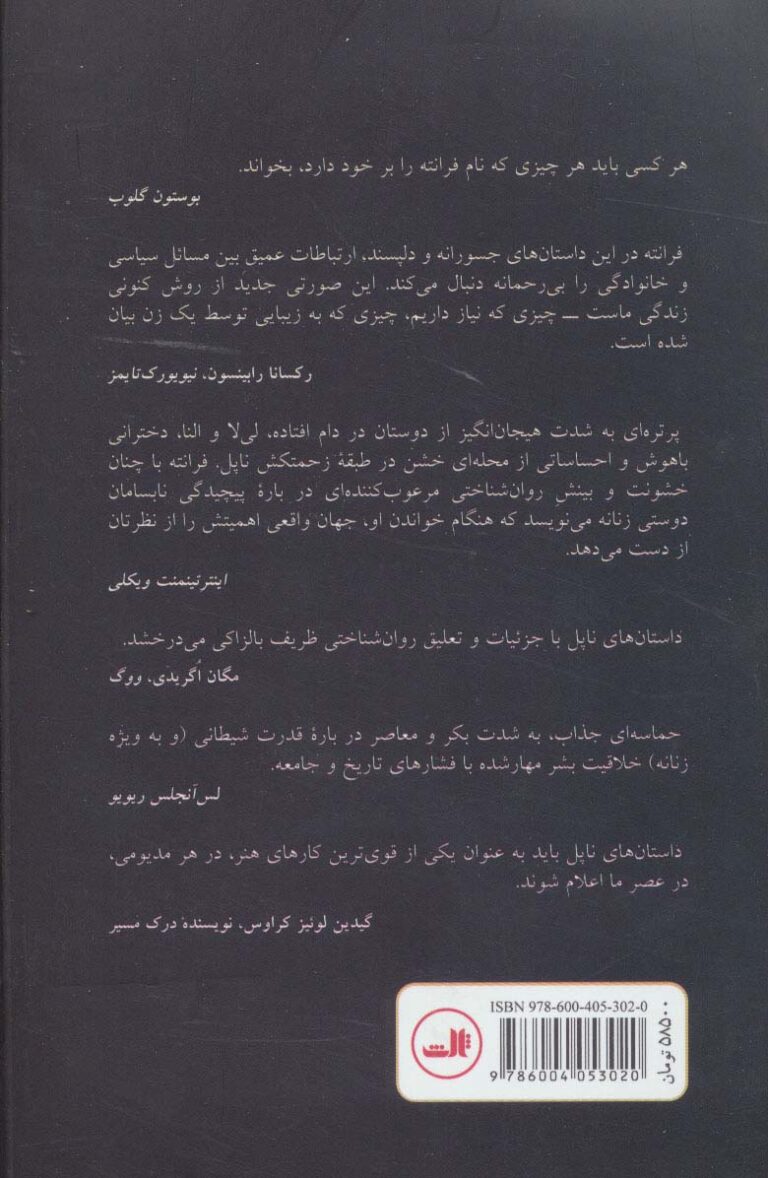 هر کسی باید هر چیزی که نام فرانته را بر خود دارد، بخواند.
بوستون گلوب
فرانته در این داستان‌های جسورانه و دلپسند، ارتباطات عمیق بین مسائل سیاسی
و خانوادگی را بی‌رحمانه دنبال می‌کند. این صورتی جدید از روش کنونی
زندگی ماست ــ چیزی که نیاز داریم، چیزی که به زیبایی توسط یک زن بیان
شده است.
رکسانا رابینسون، نیویورک‌تایمز
پرتره‌ای به شدت هیجان‌انگیز از دوستان در دام افتاده، لی‌لا و النا، دخترانی
باهوش و احساساتی از محله‌ای خشن در طبقهٔ زحمتکش ناپل. فرانته با چنان
خشونت و بینشِ روان‌شناختی مرعوب‌کننده‌ای در بارهٔ پیچیدگی نابسامان
دوستی زنانه می‌نویسد که هنگام خواندن او، جهان واقعی اهمیتش را از نظرتان
از دست می‌دهد.
اینترتینمنت ویکلی
داستان‌های ناپل با جزئیات و تعلیق روان‌شناختی ظریف بالزاکی می‌درخشد.
مگان اُگریدی، ووگ
حماسه‌ای جذاب، به شدت بکر و معاصر در بارهٔ قدرت شیطانی (و به ویژه
زنانه) خلاقیت بشر مهارشده با فشارهای تاریخ و جامعه.
لس‌آنجلس ریویو
داستان‌های ناپل باید به عنوان یکی از قوی‌ترین کارهای هنر، در هر مدیومی،
در عصر ما اعلام شوند.
گیدین لوئیز کراوس، نویسندهٔ درک مسیر
ISBN 978-600-405-302-0
9 786004 053020
۵۸۵۰۰ تومان
ثالث